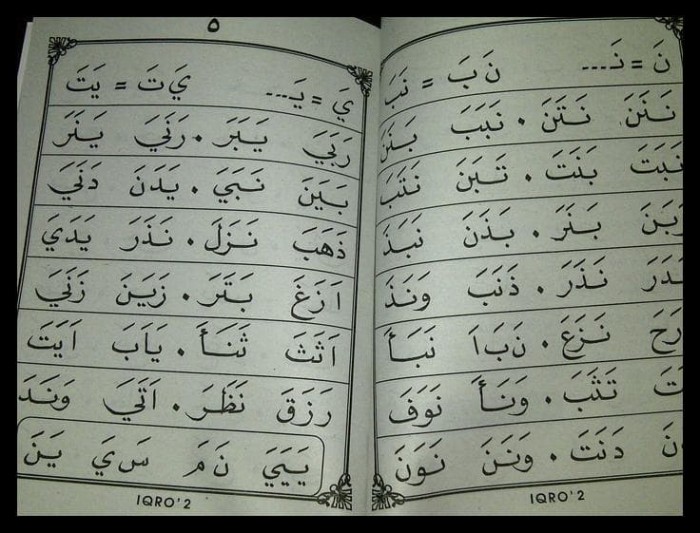 نَ = نَـ... نَ بَ = نَبَ
نَنَنَ نَتَنَ . نَبَبَ بَنَنَ
نَبَتَ بَنَتَ . تَبَنَ
بَنَرَ . بَذَنَ نَبَذَ
نَذَرَ . ذَنَبَ وَنَذَ
نَزَعَ . نَبَاَ نَبَأَ
تَثَبَ . وَنَأَ نَوَفَ
دَنَتَ . وَنَنَ نَوَنَ
IQRO'2
٥
يَ = يَـ... يَ تَ = يَتَ
رَنَيَ يَبَرَ . رَنَيَ يَنَرَ
بَيَنَ نَبَيَ . يَدَنَ دَنَيَ
ذَهَبَ نَزَلَ . نَذَرَ يَدَيَ
اَزَغَ بَتَرَ . زَيَنَ زَنَيَ
اَثَثَ ثَنَأَ . يَابَ اَيَتَ
رَزَقَ نَظَرَ . اَتَيَ وَنَدَ
يَيَيَ نَ مَ سَ يَ يَنَ
IQRO'2